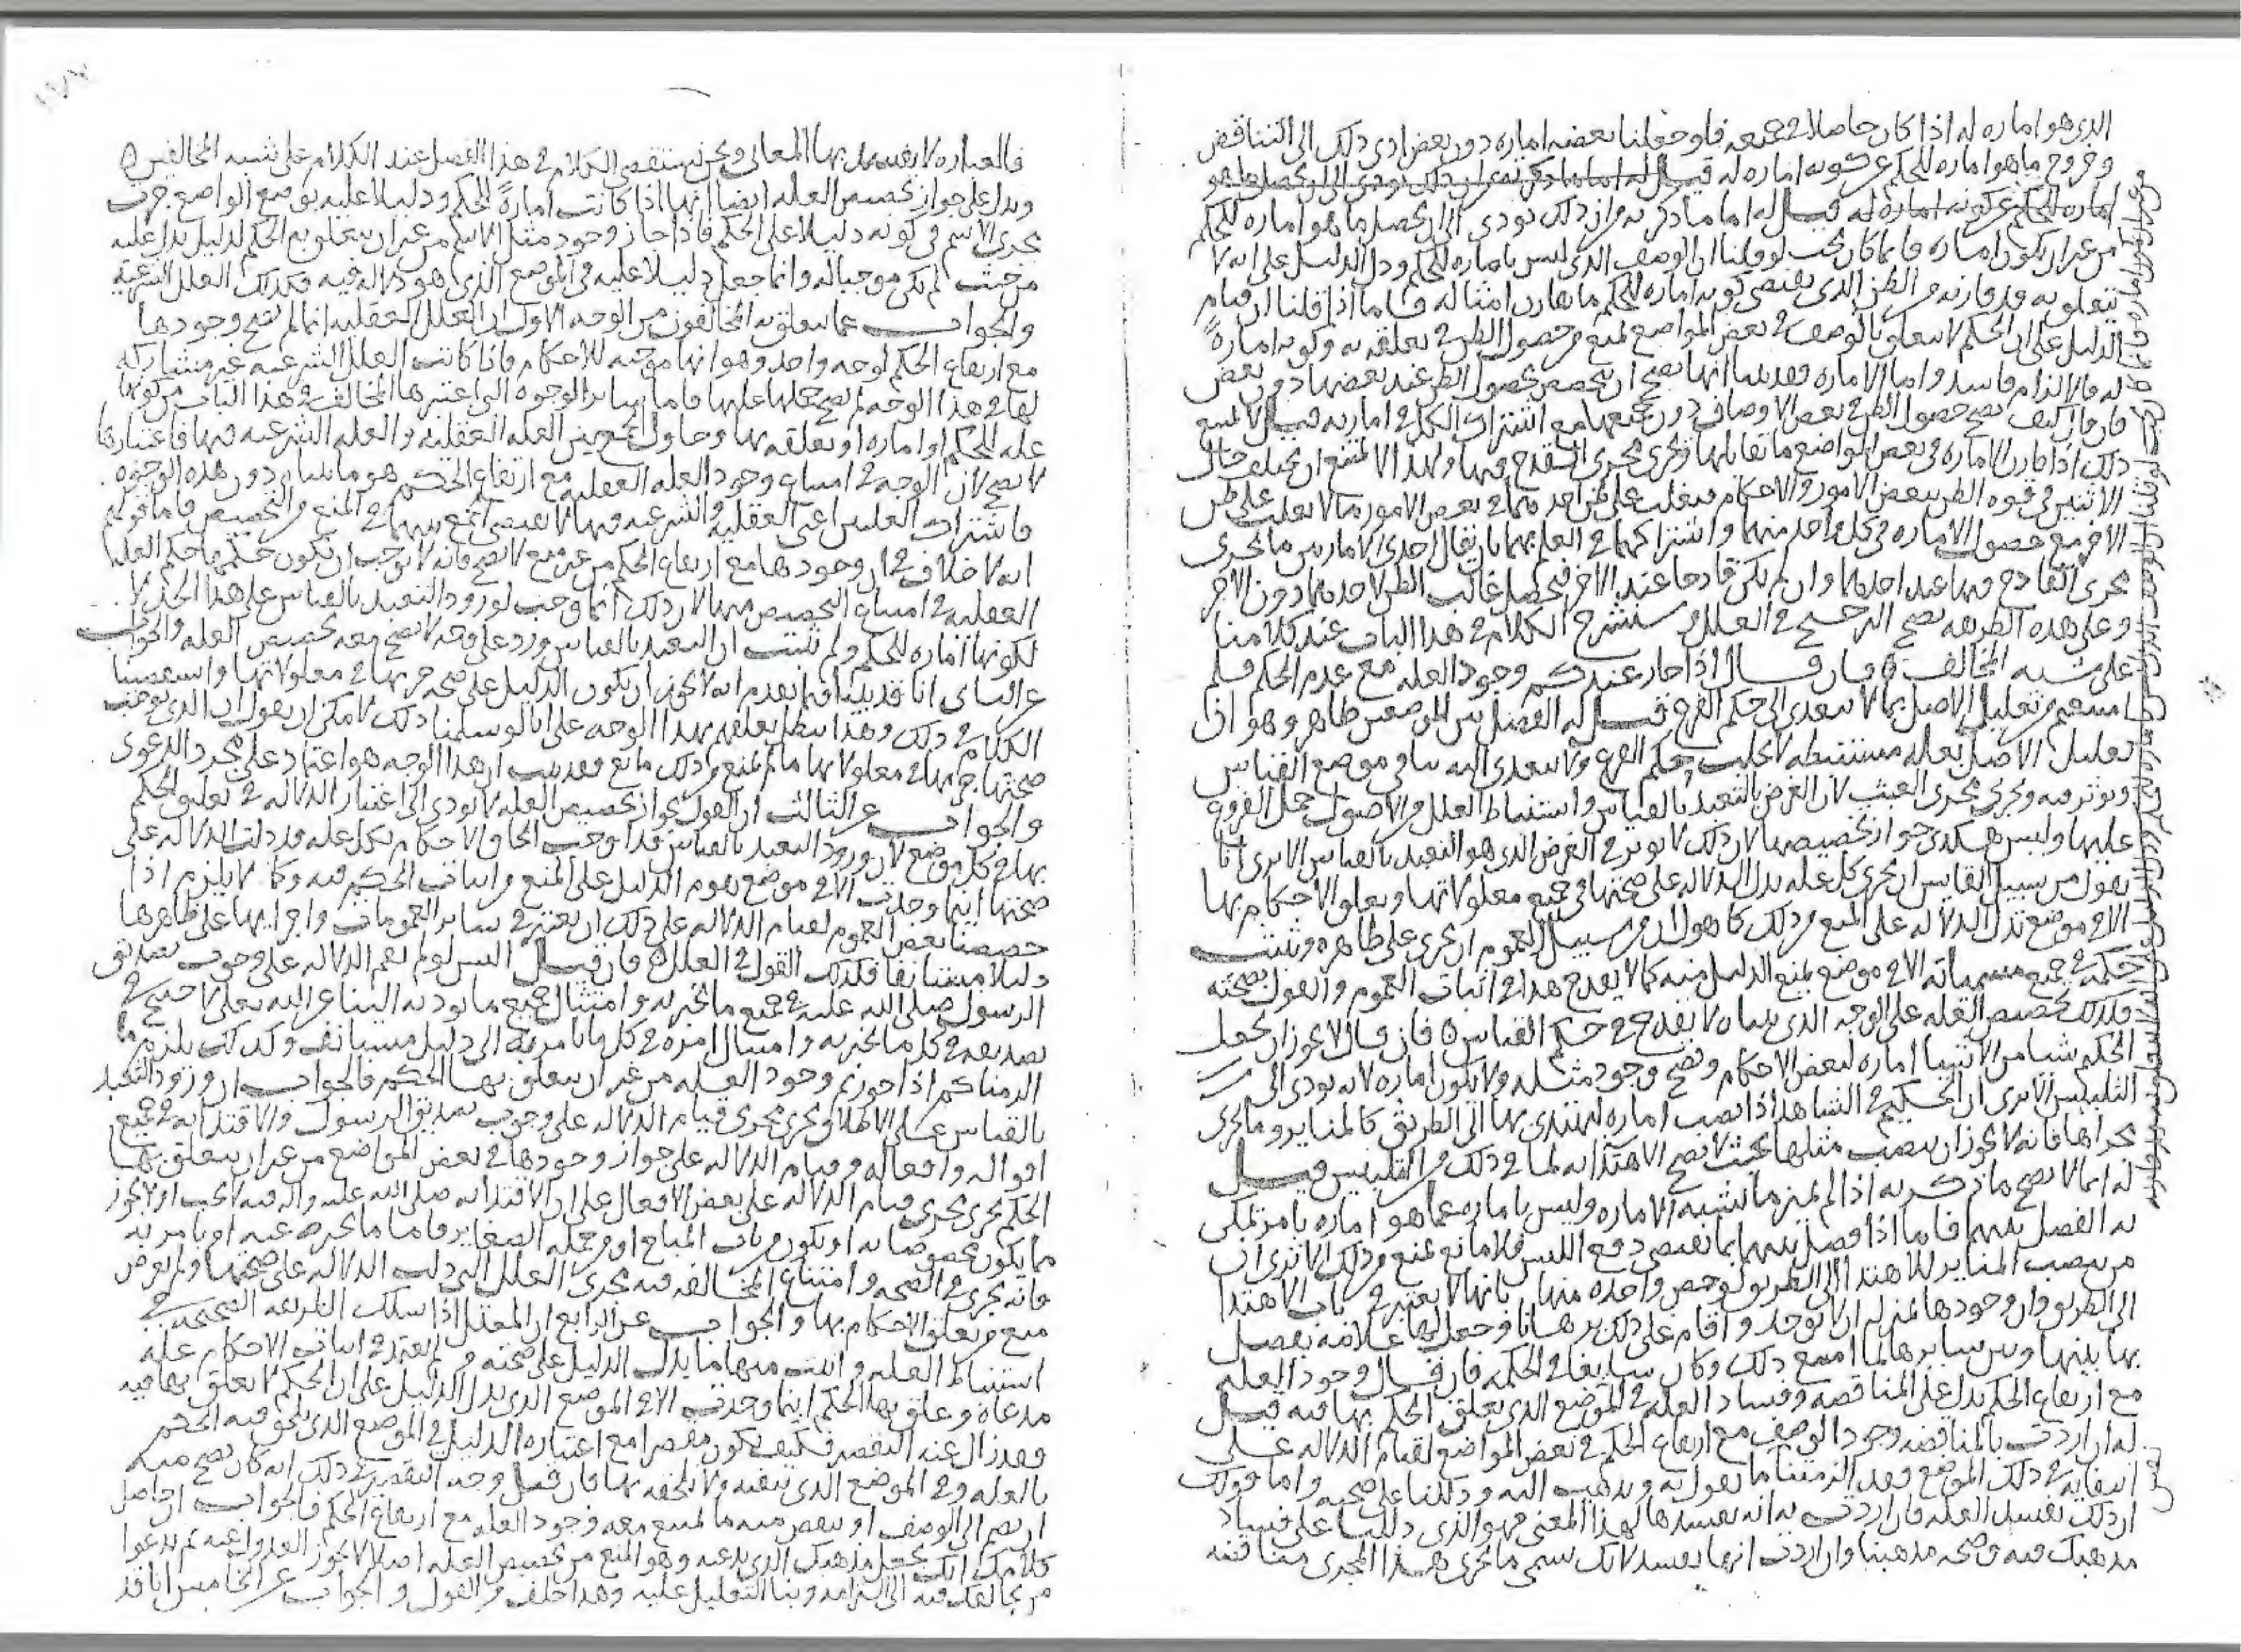 الذي هو اماره له اذا كان حاصلا في جميعه فلو جعلنا بعضه اماره دون بعض ادى ذلك الى التناقض
وخروج ما هو اماره للحكم عن كونه اماره له قيل له اما ما ذكرته من ان ذلك يودي الى ان يحصل ما هو
اماره للحكم عن كونه اماره له قيل له اما ما ذكرته من ان ذلك يودي الى ان يحصل ما هو اماره للحكم
من غير ان يكون اماره فانما كان يجب لو قلنا ان الوصف الذي ليس باماره للحكم ودل الدليل على انه لا
يتعلق به قد قارنه من الظن الذي يقتضي كونه اماره للحكم ما قارن امثاله فاما اذا قلنا ان قيام
الدليل على ان الحكم لا يتعلق بالوصف في بعض المواضع يمنع من حصول الظن في تعلقه به وكونه امارة
له فالالزام فاسد واما الاماره فقد بينا انها يصح ان تختص بحصول الظن عند بعضها دون بعض
فان قال كيف يصح حصول الظن في بعض الاوصاف دون جميعها مع اشتراك الكل في امارته قيل لا يمتنع
ذلك اذا قارن الاماره في بعض المواضع ما يقابلها ويجري مجرى القدح فيها ولهذا لا يمتنع ان يختلف حال
الاثنين في قوه الظن ببعض الامور والاحكام فيغلب على ظن احدهما في بعض الامور ما لا يغلب على ظن
الاخر مع حصول الاماره في كل واحد منهما واشتراكهما في العلم بهما بان يقابل احدى الامارتين ما يجري
مجرى القادح فيها عند احدهما وان لم يكن قادحا عند الاخر فيحصل غالب الظن لاحدهما دون الاخر
وعلى هذه الطريقه يصح الترجيح في العلل وسنشرح الكلام في هذا الباب عند كلامنا
على شبه المخالف فان قال اذا جاز عندكم وجود العله مع عدم الحكم فلم
امتنعتم من تعليل الاصل بما لا يتعدى الى حكم الفرع قيل له الفصل بين الموضعين ظاهر وهو ان
تعليل الاصل بعله مستنبطه لا يجلب حكم الفرع ولا يتعدى اليه ينافي موضع القياس
ويوثر فيه ويجري مجرى العبث لان الغرض بالتعبد بالقياس واستنباط العلل من الاصول حمل الفروع
عليها وليس هكذى جواز تخصيصها لان ذلك لا يوثر في الغرض الذي هو التعبد بالقياس الا ترى انا
نقول من سبيل القايس ان يجري كل عله يدل الدلاله على صحتها في جميع معلولاتها ويعلق الاحكام بها
الا في موضع تدل الدلاله على المنع من ذلك كما نقول ان من سبيل العموم ان يجري على ظاهره ويثبت
حكمه في جميع مسمياته الا في موضع يمنع الدليل منه كما لا يقدح هذا في اثبات العموم والقول بصحته
فكذلك تخصيص العله على الوجه الذي بيناه لا يقدح في حكم القياس فان قال لا يجوز ان يجعل
الحكيم شيا من الاشيا اماره لبعض الاحكام ويصح وجود مثله ولا يكون اماره لانه يودي الى
التلبيس الا ترى ان الحكيم في الشاهد اذا نصب اماره ليهتدى بها الى الطريق كالمناير وما جرى
مجراها فانه لا يجوز ان ينصب مثلها بحيث لا يصح الاهتدا به لما في ذلك من التلبيس قيل
له انما لا يصح ما ذكرته اذا لم يميز ما يشبه الاماره وليس باماره عما هو اماره بامر يمكن
به الفصل بينهما فاما اذا فصل بينهما بما يقتضي دفع اللبس فلا مانع يمنع من ذلك الا ترى ان
من ينصب المناير للاهتدا الى الطريق لو خص واحده منها بانها لا يعتبر في باب الاهتدا
الى الطريق وان وجودها بمنزله ان لا توجد واقام على ذلك برهانا وجعل لها علامه يفصل
بها بينها وبين سايرها لما امتنع ذلك وكان سايغا في الحكمه فان قال وجود العله
مع ارتفاع الحكم يدل على المناقضه وفساد العله في الموضع الذي يعلق الحكم بها فيه قيل
له ان اردت بالمناقضه وجود الوصف مع ارتفاع الحكم في بعض المواضع لقيام الدلاله على
انتفايه في ذلك الموضع فقد الزمتنا ما نقول به ونذهب اليه ودللنا على صحته واما قولك
ان ذلك يفسد العله فان اردت به انه يفسدها لهذا المعنى فهو الذي دللنا على فساد
مذهبك فيه وصحه مذهبنا وان اردت انها تفسد لانك تسمي ما يجري هذا المجرى مناقضه
فالعباره لا يفسد بها المعاني ونحن نستقصي الكلام في هذا الفصل عند الكلام على شبه المخالفين
ويدل على جواز تخصيص العله ايضا انها اذا كانت امارةً للحكم ودليلا عليه بوضع الواضع جرت
مجرى الاسم في كونه دليلا على الحكم فاذا جاز وجود مثل الاسم من غير ان يتعلق به الحكم لدليل يدل عليه
من حيث لم يكن موجبا له وانما جعل دليلا عليه في الموضع الذي هو دلاله فيه فكذلك العلل الشرعية
والجواب عما يتعلق به المخالفون من الوجه الاول ان العلل العقليه انما لم يصح وجودها
مع ارتفاع الحكم لوجه واحد وهو انها موجبه للاحكام فاذا كانت العلل الشرعيه غير مشاركه
لها في هذا الوجه لم يصح حملها عليها فاما ساير الوجوه التي اعتبرها المخالف في هذا الباب من كونها
عله للحكم او اماره او تعلقه بها وحاول الجمع بين العله العقليه والعله الشرعيه فيها فاعتبارها
لا يصح لان الوجه في امتناع وجود العله العقليه مع ارتفاع الحكم هو ما بيناه دون هذه الوجوه
فاشتراك العلتين اعني العقليه والشرعيه فيها لا يقتضي الجمع بينهما في المنع من التخصيص فاما قولهم
انه لا خلاف في ان وجودها مع ارتفاع الحكم من غير منع لا يصح فانه لا يوجب ان يكون حكمها حكم العله
العقليه في امتناع التخصيص منها لان ذلك انما وجب لورود التعبد بالقياس على هذا الحد لا
لكونها اماره للحكم ولم يثبت ان التعبد بالقياس ورد على وجه لا يصح معه تخصيص العله والجواب
عن الثاني انا قد بينا فيما تقدم انه لا يجوز ان يكون الدليل على صحه جريها في معلولاتها واستقصينا
الكلام في ذلك وهذا يبطل تعلقهم بهذا الوجه على انا لو سلمنا ذلك لامكن ان نقول ان الذي يوجب
صحتها جريها في معلولاتها ما لم يمنع من ذلك مانع فقد ثبت ان هذا الوجه هو اعتماد على مجرد الدعوى
والجواب عن الثالث ان القول بجواز تخصيص العله لا يودي الى اعتبار الدلاله في تعليق الحكم
بها في كل موضع لان ورود التعبد بالقياس قد اوجب الحاق الاحكام بكل عله قد دلت الدلاله على
صحتها اينما وجدت الا في موضع يقوم الدليل على المنع من اثبات الحكم فيه وكما لا يلزم اذا
خصصنا بعض العموم لقيام الدلاله على ذلك ان يعتبر في ساير العمومات واجرايها على ظاهرها
دليلا مستانفا فكذلك القول في العلل فان قيل اليس لو لم تقم الدلاله على وجوب تصديق
الرسول صلى الله عليه في جميع ما يخبر به وامتثال جميع ما يوديه الينا عن الله تعالى لاحتيج في
تصديقه في كل ما يخبر به وامتثال امره في كل ما يامر به الى دليل مستانف وكذلك يلزم ما
الزمناكم اذا جوزتم وجود العله من غير ان يتعلق بها الحكم فالجواب ان ورود التعبد
بالقياس على الاطلاق يجري مجرى قيام الدلاله على وجوب تصديق الرسول والاقتدا به في جميع
اقواله وافعاله وقيام الدلاله على جواز وجودها في بعض المواضع من غير ان يتعلق بها
الحكم يجري مجرى قيام الدلاله على بعض الافعال على ان الاقتدا به صلى الله عليه واله فيه لا يجب او لا يجوز
ما يكون مخصوصا به او يكون من باب المباح او من جمله الصغاير فاما ما يخبر عنه او يامر به
فانه يجري في الصحه وامتناع المخالفه فيه مجرى العلل التي دلت الدلاله على صحتها ولم يعرض
منع من تعلق الاحكام بها والجواب عن الرابع ان المعتل اذا سلك الطريقه الصحيحه في
استنباط العله واثبت منها ما يدل الدليل على صحته ولم يعتمد في اثبات الاحكام عله
مدعاه وعلق بها الحكم اينما وجدت الا في الموضع الذي يدل الدليل على ان الحكم لا يعلق بها فيه
فقد زال عنه التقصير فكيف يكون مقصرا مع اعتباره الدليل في الموضع الذي يلحق فيه الحكم
بالعله وفي الموضع الذي ينفيه ولا يلحقه بها فان قيل وجه التقصير في ذلك انه كان يصح منه
ان يضم الى الوصف او ينقص منه ما يمتنع معه وجود العله مع ارتفاع الحكم فالجواب ان حاصل
كلامك انك تجعل مذهبك الذي تدعيه وهو المنع من تخصيص العله اصلا لا يجوز العدول عنه ثم تدعوا
من يخالفك فيه الى التزامه وبنا التعليل عليه وهذا خلف من القول والجواب عن الخامس انا قد